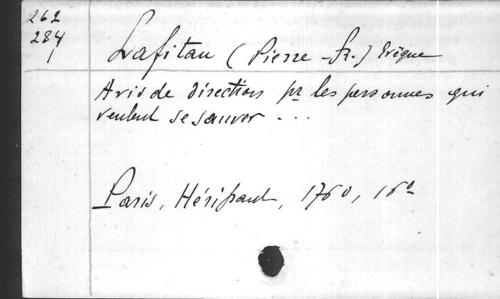 262
284
1
Lafitau (Pierre-Fr.) Evêque
Avis de Direction pr les personnes qui
veulent se sauver ...
Paris, Hérissant, 1760, 16°